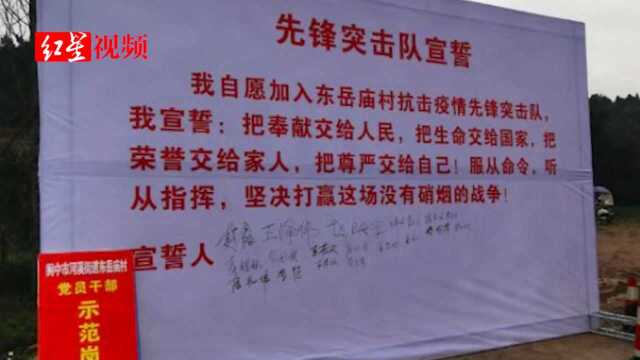 红星视频
先锋突击队宣誓
我自愿加入东岳庙村抗击疫情先锋突击队,
我宣誓：把奉献交给人民，把生命交给国家，把
荣誉交给家人，把尊严交给自己！服从命令，听
从指挥，坚决打赢这场没有硝烟的战争！
宣誓人
阆中市河溪街道东岳庙村
党员干部
示范岗